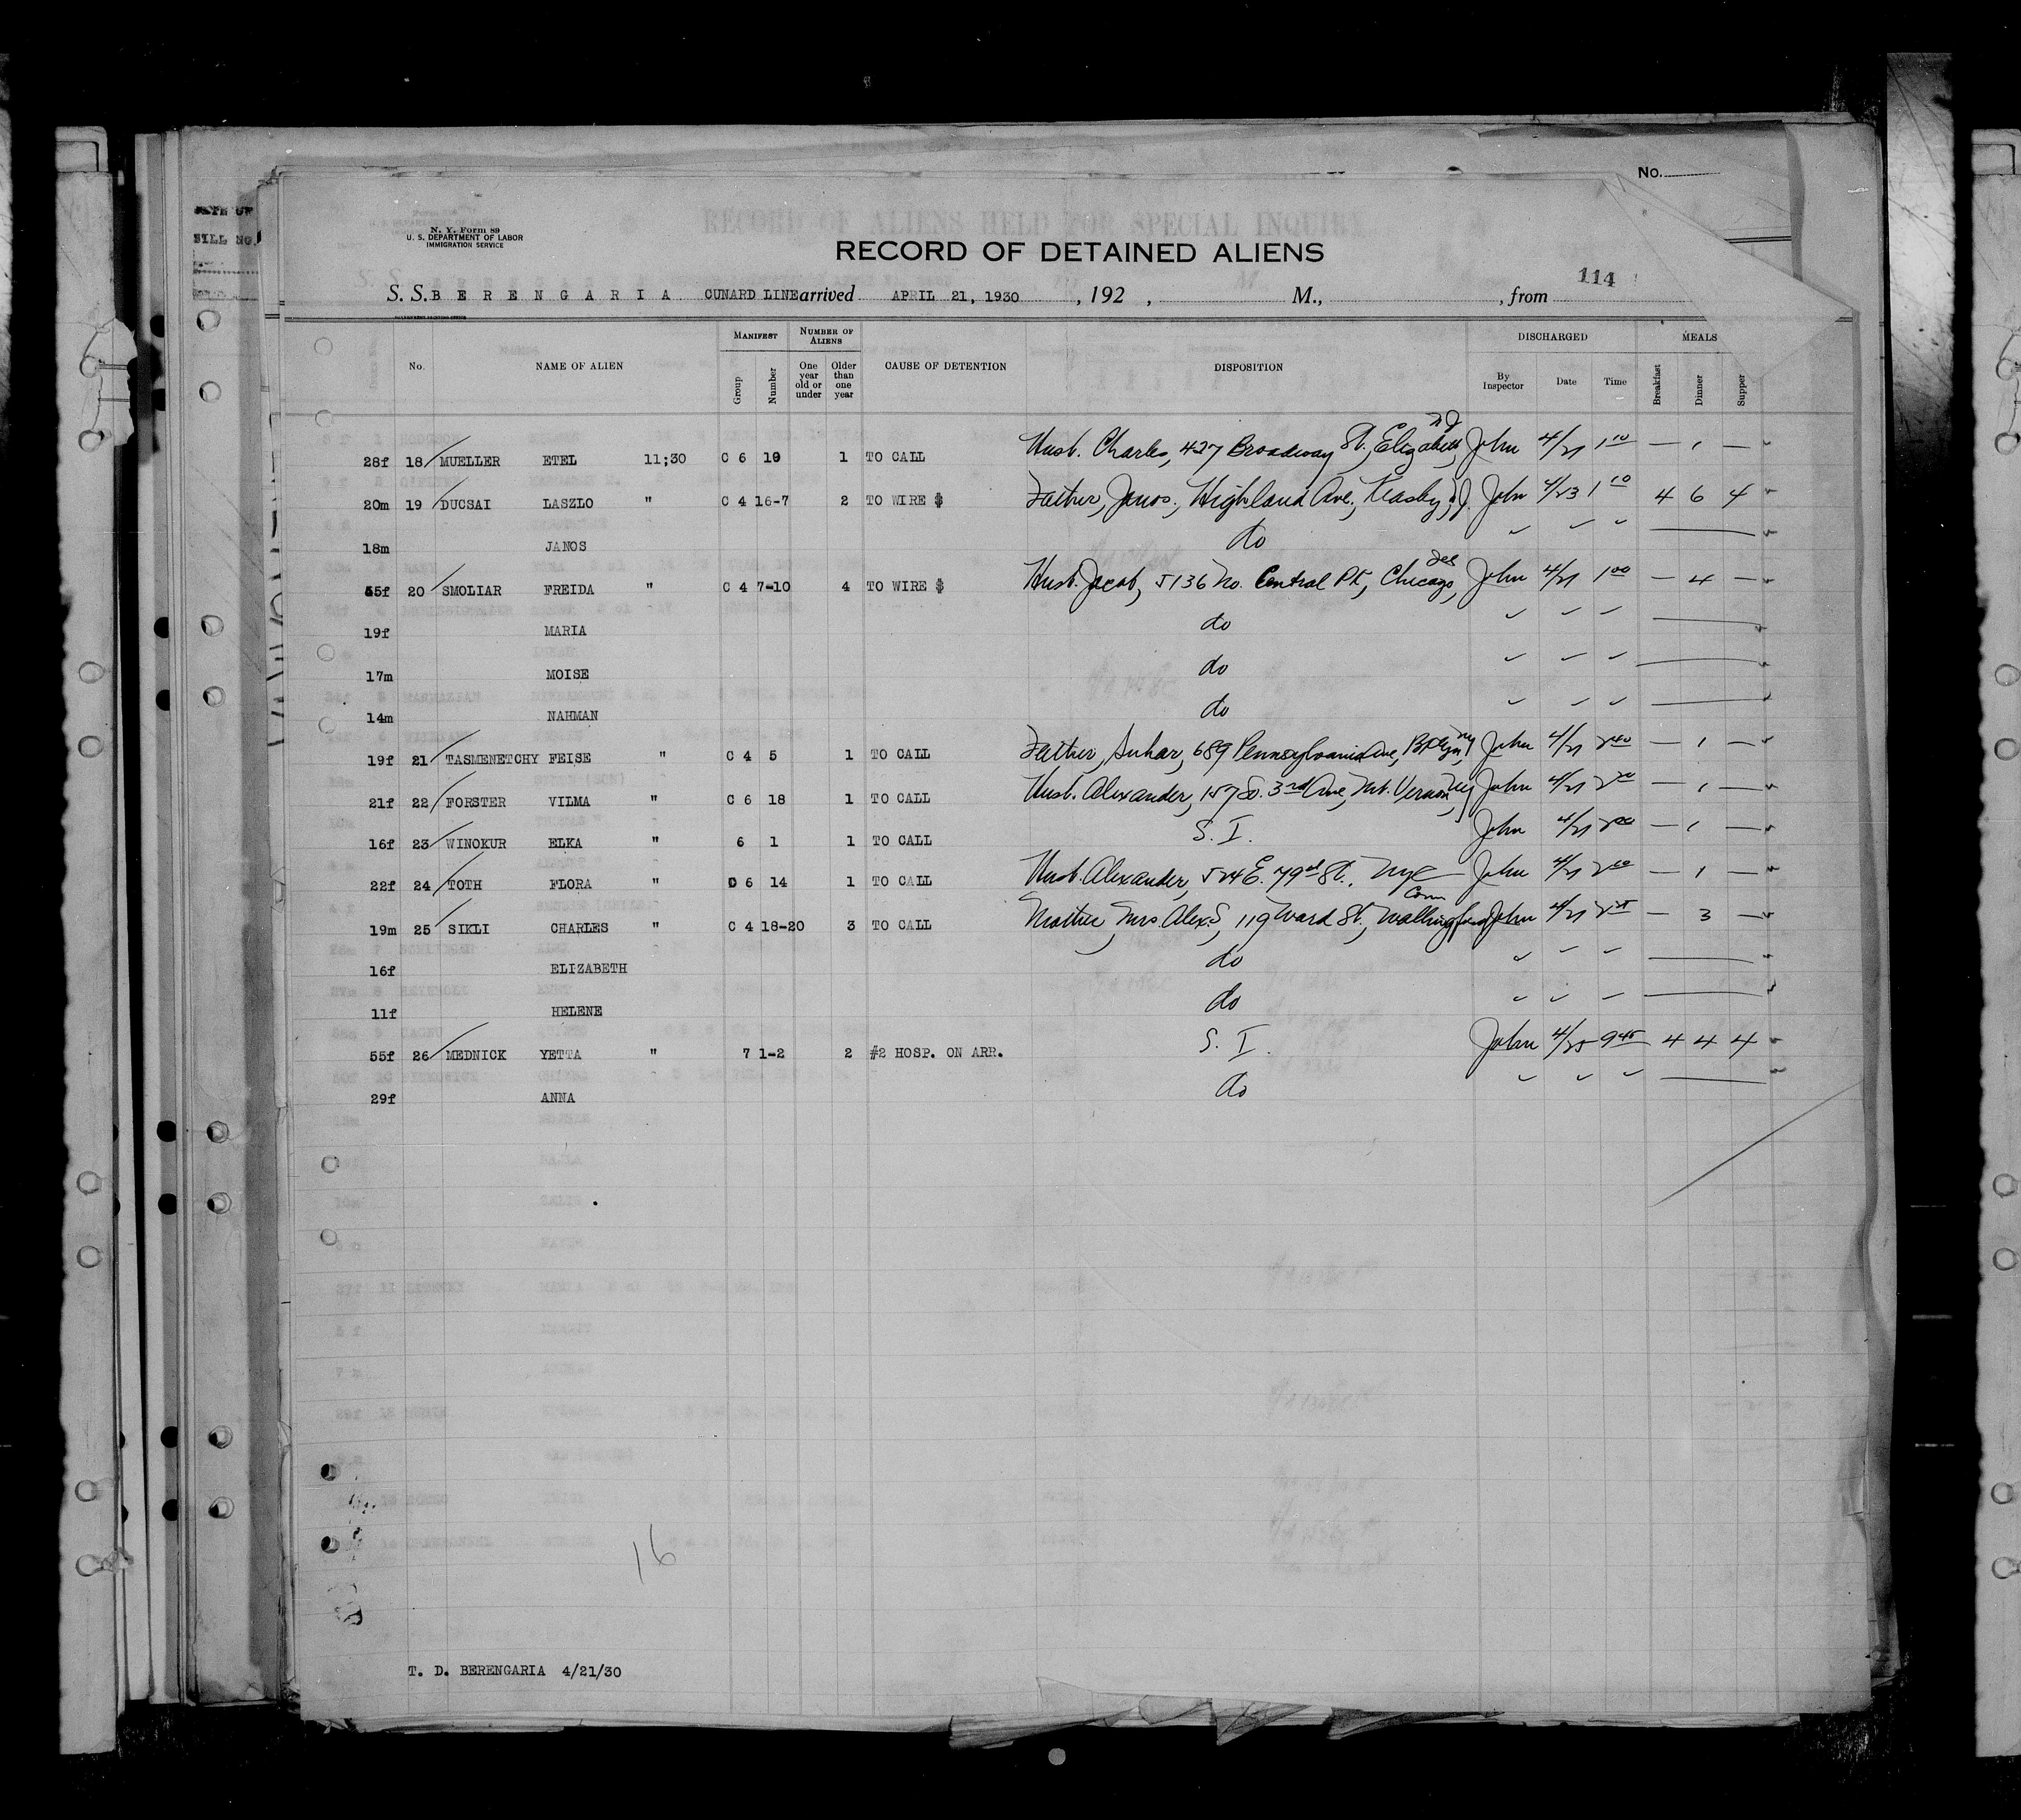 No.
N. Y. Form 89
U. S. DEPARTMENT OF LABOR
IMMIGRATION SERVICE
RECORD OF ALIENS HELD FOR SPECIAL INQUIRY
RECORD OF DETAINED ALIENS
114
S. S. BERENGARIA CUNARD LINE arrived APRIL 21, 1930, 192 , M., , from
No. NAME OF ALIEN MANIFEST Group Number NUMBER OF ALIENS One year old or under Older than one year CAUSE OF DETENTION DISPOSITION DISCHARGED By Inspector Date Time MEALS Breakfast Dinner Supper
28f 18 MUELLER ETEL 11;30 C 6 19 1 TO CALL Husb. Charles, 427 Broadway St., Elizabeth, NJ John 4/21 1 10 — 1 —
20m 19 DUCSAI LASZLO " C 4 16-7 2 TO WIRE $ Father, Janos, Highland Ave., Keasby, NJ. John 4/23 1 10 4 6 4
18m JANOS do
55f 20 SMOLIAR FREIDA " C 4 7-10 4 TO WIRE $ Husb. Jacob, 5136 No. Central Pk, Chicago, John 4/21 1 00 — 4 —
19f MARIA do
17m MOISE do
14m NAHMAN do
19f 21 TASMENETCHY FEISE " C 4 5 1 TO CALL Father, 689 Pennsylvania Ave, Bklyn, NY John 4/21 2 40 — 1 —
21f 22 FORSTER VILMA " C 6 18 1 TO CALL Husb. Alexander, 157 So. 3rd Ave, Mt. Vernon, NY John 4/21 — 1 —
16f 23 WINOKUR ELKA " 6 1 1 TO CALL S. I. John 4/21 2 00 — 1 —
22f 24 TOTH FLORA " D 6 14 1 TO CALL Husb. Alexander, 524 E. 79th St., NYC John 4/21 — 1 —
19m 25 SIKLI CHARLES " C 4 18-20 3 TO CALL Mother, Mrs. Alex. S, 119 Ward St., Wallingford, Conn John 4/21 — 3 —
16f ELIZABETH do
11f HELENE do
55f 26 MEDNICK YETTA " 7 1-2 2 #2 HOSP. ON ARR. S. I. John 4/25 9 45 4 4 4
29f ANNA do
16
T. D. BERENGARIA 4/21/30